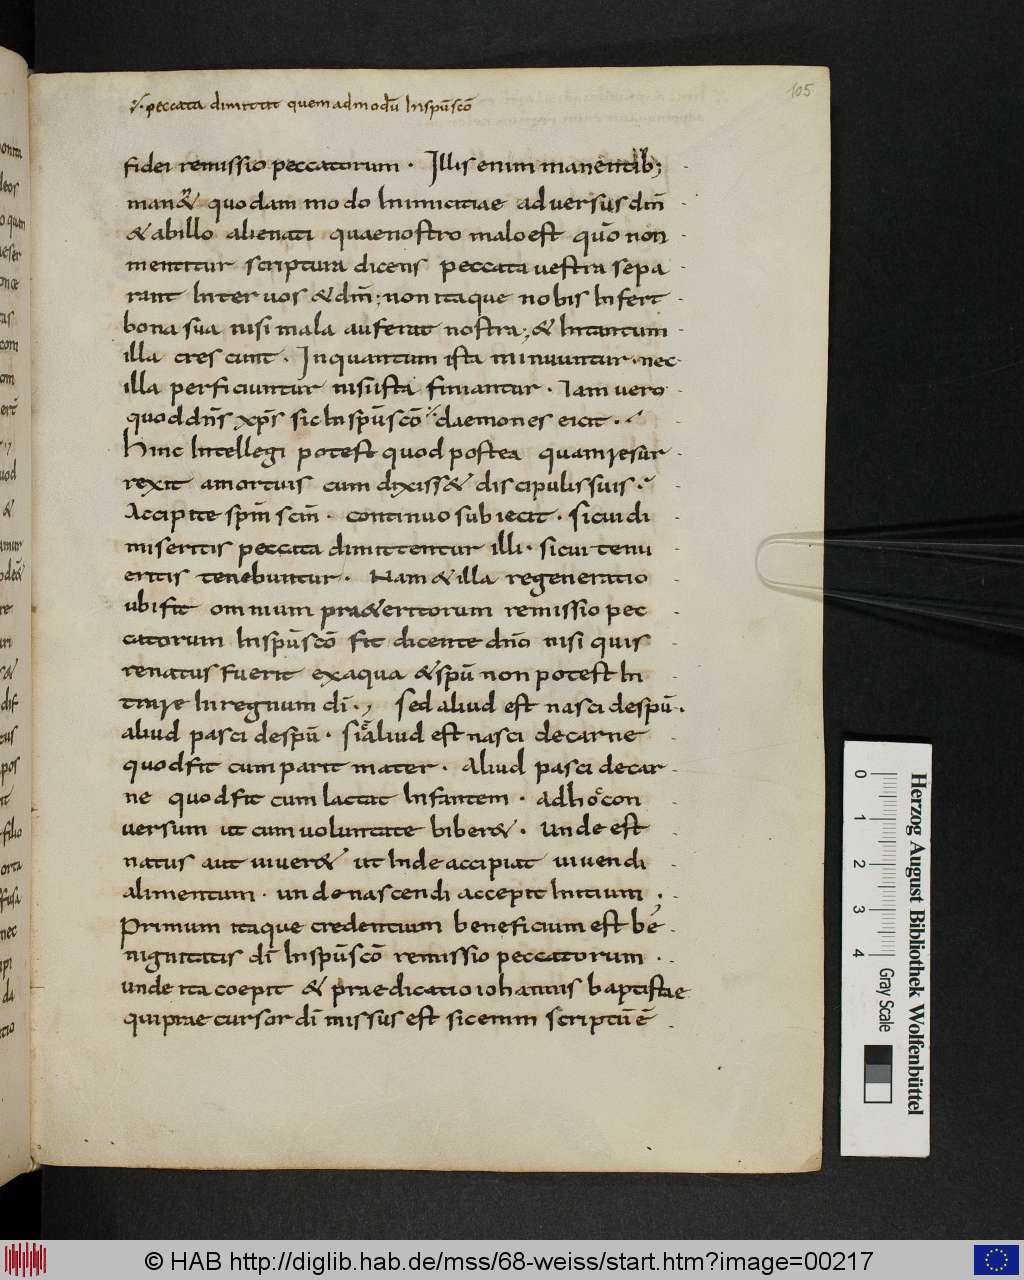 105
peccata dimittit quemadmodū Inspūscō
fidei remissio peccatorum · Illis enim manentib;
man& quodam modo Inimicitiae adversus dm̄
& abillo alienati quae nostro malo est quō non
mentitur scriptura dicens peccata vestra sepa
rant Inter vos & dm̄; non itaque nobis Infert
bona sua nisi mala auferat nostra; & Intantum
illa crescunt · Inquantum ista minuuntur · nec
illa perficiuntur nisi ista finiantur · Iam vero
quod dn̄s xp̄s sic Inspūscō daemones eicit ·
Hinc Intellegi potest quod postea quam resur
rexit amortuis cum dixiss& discipulis suis ·
Accipite spm̄ scm̄ · continuo subiecit · sicui di
miseritis peccata dimittentur illi · sicui tenu
eritis tenebuntur · Nam & illa regeneratio
ubi fit omnium pra&eritorum remissio pec
catorum Inspūscō fit dicente dnō nisi quis
renatus fuerit exaqua &spū non potest In
trare Inregnum dī · sed aliud est nasci despū ·
aliud pasci despū · sic aliud est nasci decarne
quod fit cum parit mater · Aliud pasci decar
ne quod fit cum lactat Infantem · adhoc con
versum ut cum voluntate biber& · unde est
natus aut viver& ut Inde accipiat vivendi
alimentum · unde nascendi accepit Initium ;
Primum itaque credentium beneficium est be
nignitatis dī Inspūscō remissio peccatorum ·
unde ita coepit & praedicatio iohannis baptistae
qui praecursor dī missus est sic enim scriptū ē
0
1
2
3
4
Gray Scale
Herzog August Bibliothek Wolfenbüttel
© HAB http://diglib.hab.de/mss/68-weiss/start.htm?image=00217